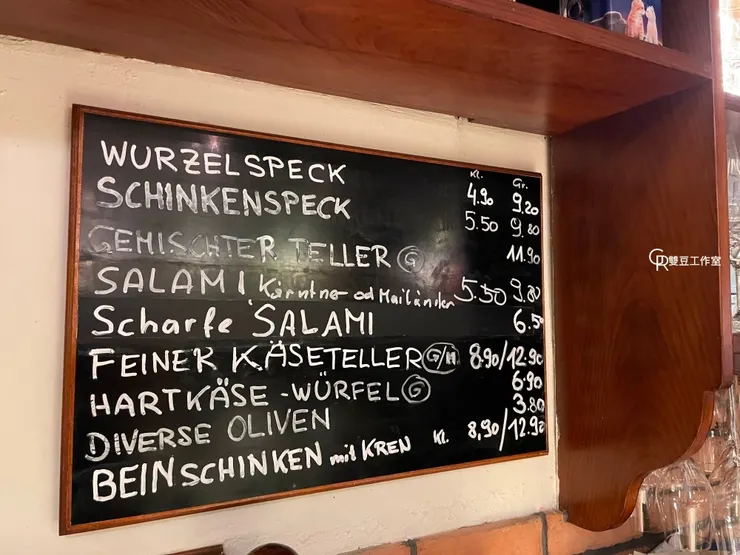 Kl. Gr.
WURZELSPECK 4.90 9.20
SCHINKENSPECK 5.50 9.80
GEMISCHTER TELLER G 11.90
SALAMI Kärntner od Mailänder 5.50 9.80
Scharfe SALAMI 6.50
FEINER KÄSETELLER G/H 8.90/12.90
HARTKÄSE-WÜRFEL G 6.90
DIVERSE OLIVEN 3.80
BEINSCHINKEN mit KREN Kl. 8,90/12.90
CR雙豆工作室